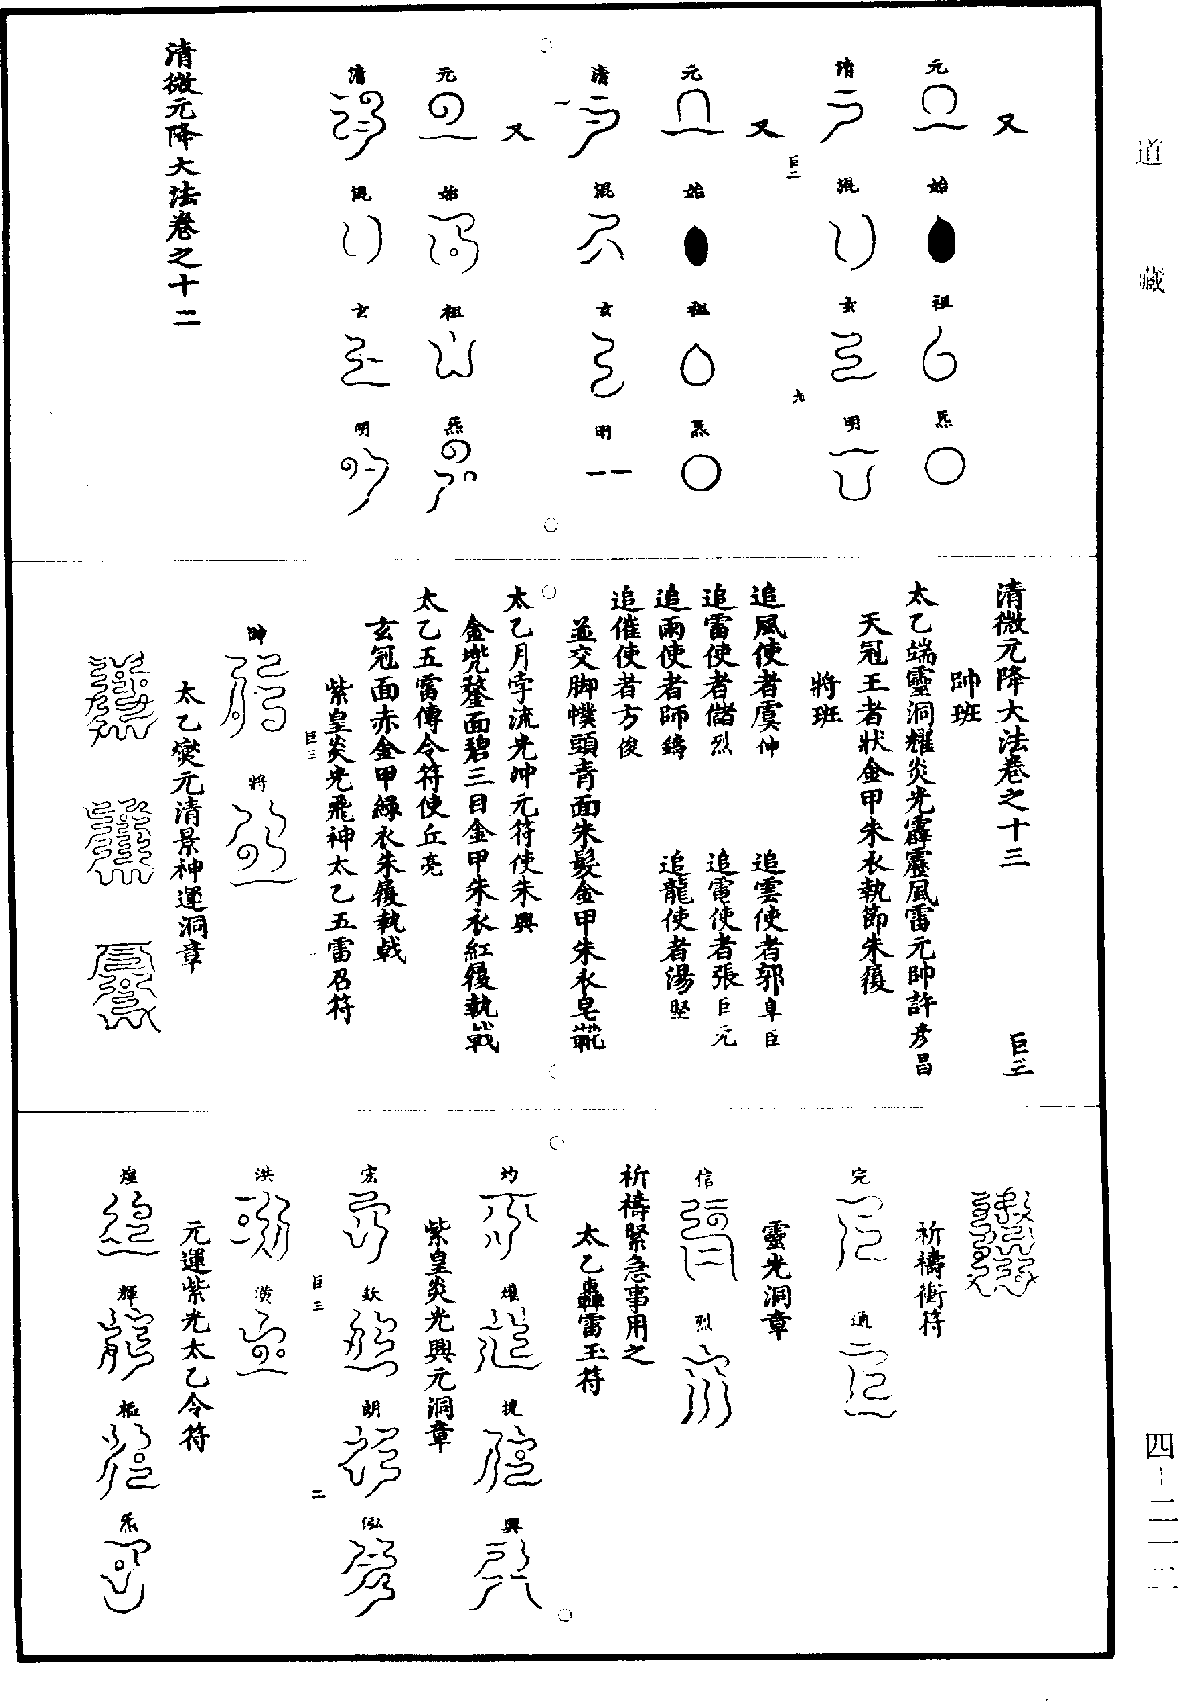 道藏
又
元始祖炁
清混玄明
巨二 九
又
元始祖炁
清混玄明
又
元始祖炁
清混玄明
清微元降大法卷之十二
清微元降大法卷之十三 巨三
帥班
太乙端靈洞耀炎光霹靂風雷元帥許彥昌
天冠王者狀金甲朱衣執節朱履
將班
追風使者虞仲 追雲使者郭阜臣
追雷使者儲烈 追電使者張巨元
追雨使者師鑄 追龍使者湯堅
追催使者方俊
並交脚幞頭青面朱髮金甲朱衣皂靴
太乙月孛流光帥元符使朱興
金兠鍪面碧三目金甲朱衣紅履執戟
太乙五雷傳令符使丘亮
玄冠面赤金甲綠衣朱履執戟
紫皇炎光飛神太乙五雷召符
巨三
帥將
太乙爕元清景神運洞章
祈禱衛符
完通
靈光洞章
信烈
祈禱緊急事用之
太乙轟雷玉符
均 捷興
紫皇炎光興元洞章
宏欽朗
巨三 二
洪
元運紫光太乙令符
煌輝 炁
四-二一二